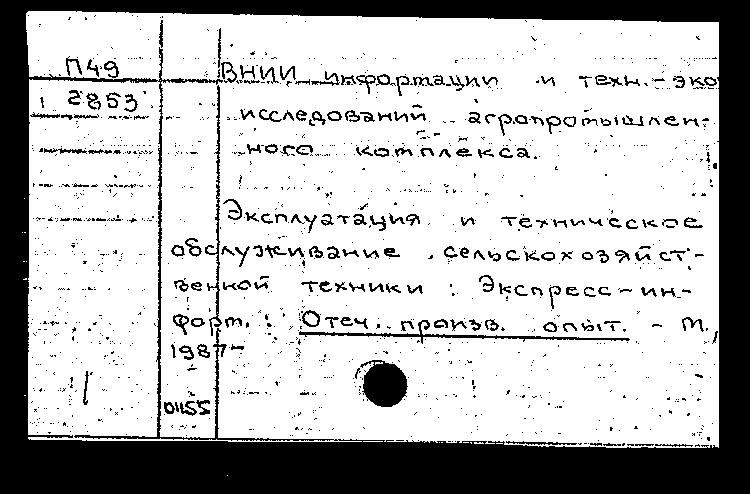 П49
2853
ВНИИ информации и техн.-эко
исследований агропромышлен-
ного комплекса.
Эксплуатация и техническое
обслуживание сельскохозяйст-
венной техники : Экспресс-ин-
форм. : Отеч. произв. опыт. - М.,
1987-
01155